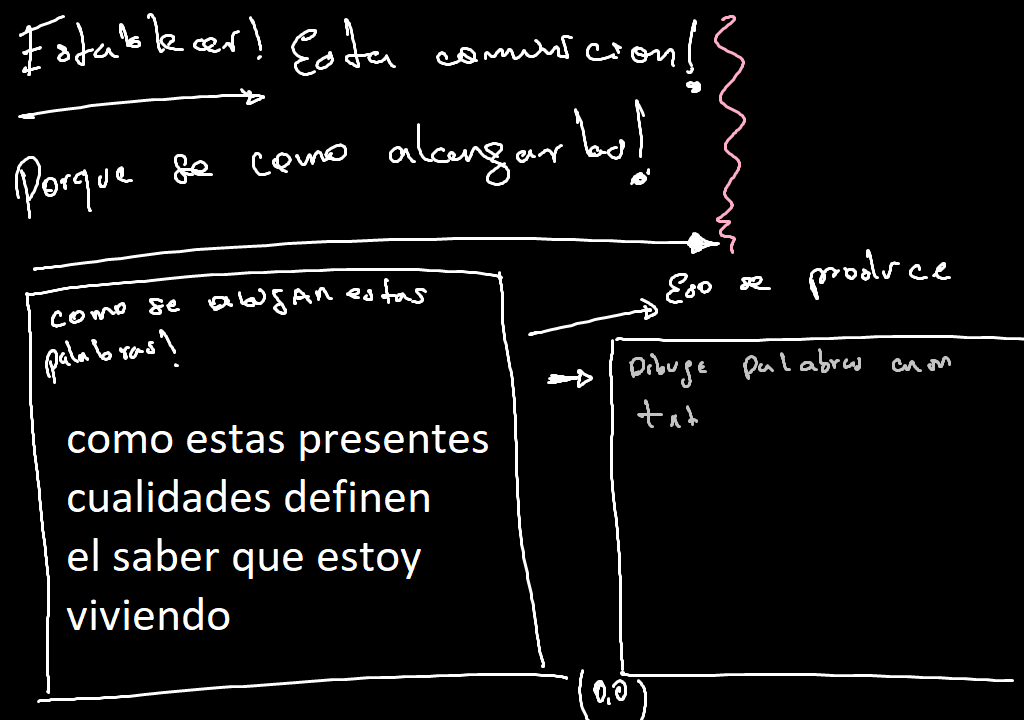 Establecer! Esta comunicion!
Porque se como alcanzarlo!
Eso se produce
como se alojan estas
palabras!
como estas presentes
cualidades definen
el saber que estoy
viviendo
Dibuge palabras
txt
(0,0)